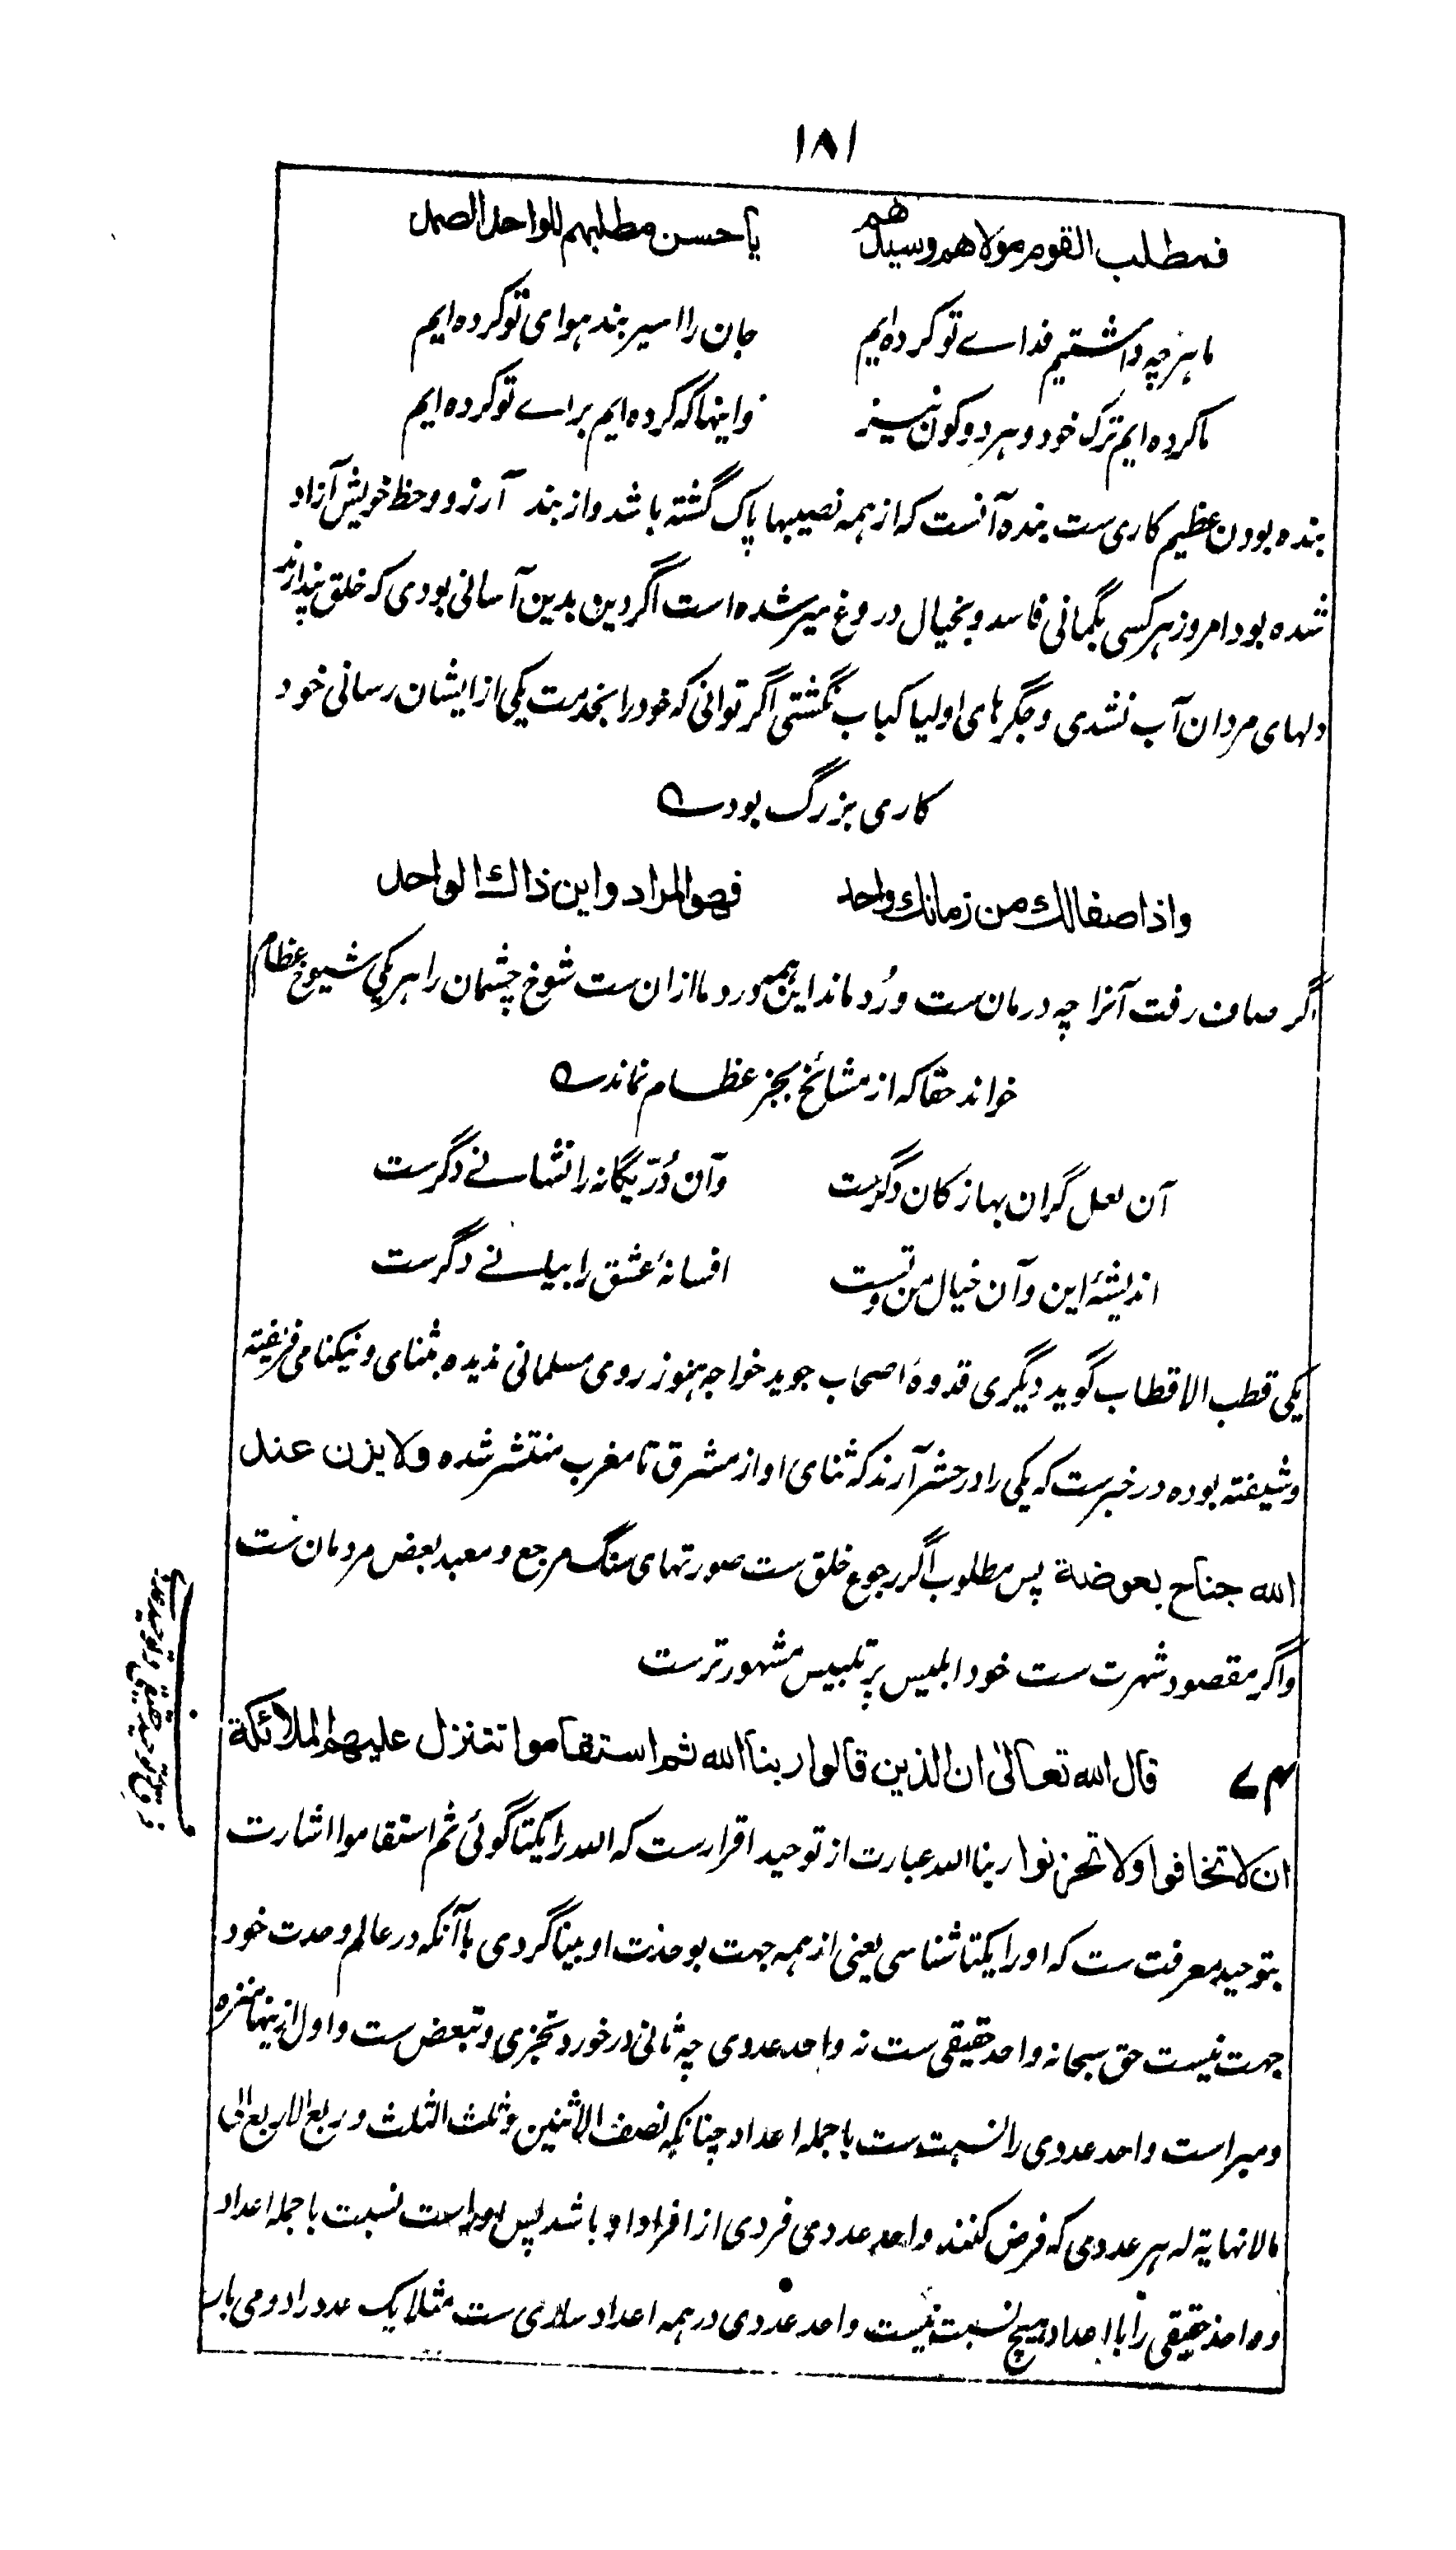 ۱۸۱
فمطلب القوم مولاهم وسیدهم یا حسن مطلبهم للواحد الصمد
ما هرچه داشتیم فداے تو کرده‌ایم جان را اسیر بند هوای تو کرده ایم
ما کرده ایم ترک خود و هر دو کون نیز واینها که کرده ایم براے تو کرده ایم
بنده بودن عظیم کاری ست بنده آنست که از همه نصیبها پاک گشته باشد و از بند آرزو و حظ خویش آزاد
شده بود امروز هرکسی بگمانی فاسد و بخیال دروغ میر شده است اگر دین بدین آسانی بودی که خلق پندارند
دلهای مردان آب نشدی و جگرهای اولیا کباب نگشتی اگر توانی که خود را بخدمت یکی از ایشان رسانی خود
کاری بزرگ بود
واذا صفا لك من زمانك واحد فهو المراد واین ذاك الواحد
اگر صاف رفت آنرا چه درمان ست و دُرد ماند این همه درد ما ازان ست شوخ چشمان را هر یکی شیوخ عظام
خواند حقا که از مشائخ بجز عظام نماند
آن لعل گران بها ز کان دگرست وآن دُرّ یگانه را نشانے دگرست
اندیشهٔ این وآن خیال من وتست افسانهٔ عشق را بیانے دگرست
یکی قطب الاقطاب گوید دیگری قدوهٔ اصحاب جوید خواجه هنوز روی مسلمانی ندیده بثنای و نیکنامی فریفته
وشیفته بوده در خبرست که یکی را در حشر آرند که ثنای او از مشرق تا مغرب منتشر شده ولا یزن عند
الله جناح بعوضة پس مطلوب اگر رجوع خلق ست صورتهای سنگ مرجع و معبد بعض مردمان ست
واگر مقصود شهرت ست خود ابلیس پر تلبیس مشهورترست
۷۴ قال الله تعالیٰ ان الذین قالوا ربنا الله ثم استقاموا تتنزل علیهم الملائكة
ان لا تخافوا ولا تحزنوا ربنا الله عبارت از توحید اقرارست که الله را یکتا گوئی ثم استقاموا اشارت
بتوحید معرفت ست که او را یکتا شناسی یعنی از همه جهت بوحدت او بینا گردی با آنکه در عالم وحدت خود
جهت نیست حق سبحانه واحد حقیقی ست نه واحد عددی چه ثانی درخورد تجزی و تبعض ست و اول ازینها منزه
ومبراست واحد عددی را نسبت ست با جمله اعداد چنانکه نصف الاثنین و ثلث الثلث و ربع الاربع الی
مالانهایة له هر عددی که فرض کنند واحد عددی فردی از افراد او باشد پس او راست نسبت با جمله اعداد
و واحد حقیقی را با اعداد هیچ نسبت نیست واحد عددی در همه اعداد ساری ست مثلا یک عدد را دو می باب
فرق توحید حقیقی و توحید عددی